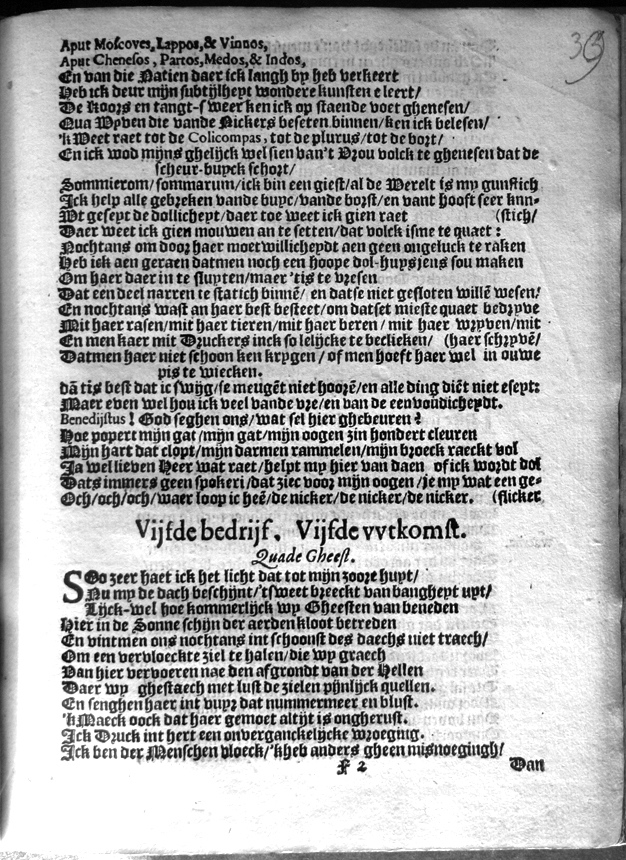 39
Aput Moscoves, Lappos, & Vinnos,
Aput Chenesos, Partos, Medos, & Indos,
En van die Natien daer ick langh by heb verkeert
Heb ick deur mijn subtijlheyt wondere kunsten e leert/
De Koors en tangt-sweer ken ick op staende voet ghenesen/
Qua Wyven die vande Nickers beseten binnen/ken ick belesen/
'k Weet raet tot de Colicompas, tot de plurus/tot de bort/
En ick wod mijns ghelijck wel sien van't Vrou volck te ghenesen dat de
scheur-buyck schort/
Sommierom/sommarum/ick bin een giest/al de Werelt is my gunstich
Ick help alle gebreken vande buyc/vande borst/en vant hooft seer knn-
Wt geseyt de dollicheyt/daer toe weet ick gien raet (stich/
Daer weet ick gien mouwen an te setten/dat volck isme te quaet:
Nochtans om door haer moetwillicheydt aen geen ongeluck te raken
Heb ick aen geraen datmen noch een hoope dol-huysjens sou maken
Om haer daer in te sluyten/maer 'tis te vresen
Dat een deel narren te statich binnē/ en datse niet gesloten willē wesen/
En nochtans wast an haer best besteet/om datset mieste quaet bedryve
Mit haer rasen/mit haer tieren/mit haer beren/ mit haer wryven/mit
En men kaer mit Druckers inck so lelijcke te beclieken/ (haer schryvē/
Datmen haer niet schoon ken krygen / of men hoeft haer wel in ouwe
pis te wiecken.
dā tis best dat ic swyg/se meugēt niet hoorē/en alle ding diēt niet eseyt:
Maer even wel hou ick veel vande vre/en van de eenvoudicheydt.
Benedijstus! God seghen ons/wat sel hier ghebeuren?
Hoe popert mijn gat/mijn gat/mijn oogen zin hondert cleuren
Mijn hart dat clopt/mijn darmen rammelen/mijn broeck raeckt vol
Ja wel lieven Heer wat raet/helpt my hier van daen of ick wordt dol
Dats immers geen spokeri/dat ziec voor mijn oogen/je my wat een ge-
Och/och/och/waer loop ic heē/de nicker/de nicker/de nicker. (flicker
Vijfde bedrijf. Vijfde vvtkomst.
Quade Gheest.
SOo zeer haet ick het licht dat tot mijn zoore huyt/
Nu my de dach beschijnt/'tsweet breeckt van bangheyt uyt/
Lijck-wel hoe kommerlijck wy Gheesten van beneden
Hier in de Sonne schijn der aerden kloot betreden
En vintmen ons nochtans int schoonst des daechs niet traech/
Om een vervloeckte ziel te halen/die wy graech
Van hier vervoeren nae den afgrondt van der Hellen
Daer wy ghestaech met lust de zielen pijnlijck quellen.
En senghen haer int vuyr dat nummermeer en blust.
'k Maeck oock dat haer gemoet altijt is ongherust.
Ick Druck int hert een onverganckelijcke wroeging.
Ick ben der Menschen vloeck/'kheb anders gheen misnoegingh/
F 2 Dan